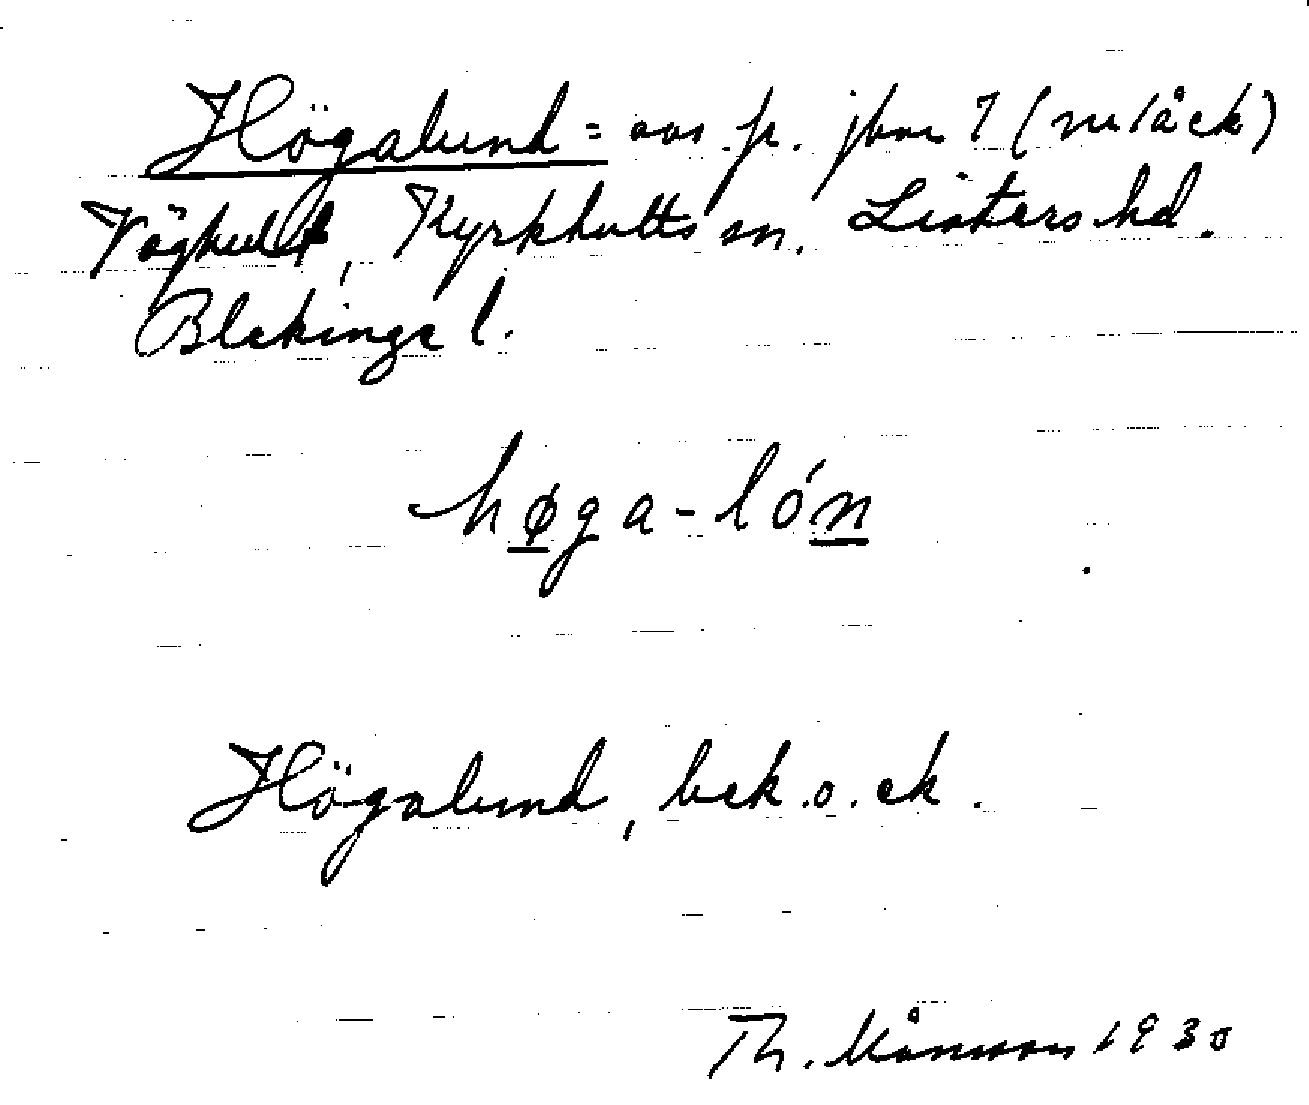 Högalund = avs. fr. jbnr 7 (nu låck)
Vöghult, Kyrkhults sn. Listers hd.
Blekinge l.
høga-lón
Högalund, bek. o. ck.
Th. Månsson 1930